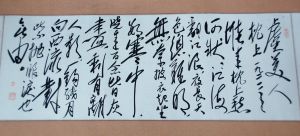 虞美人
枕上 一九二一
堆来枕上愁
何状江海
翻波浪夜长天
色总难明
無奈披衣起坐
薄寒中
晓来百念皆灰
烬剩有離
人影一钩残月
向西流對
此不抛眼淚也
無由